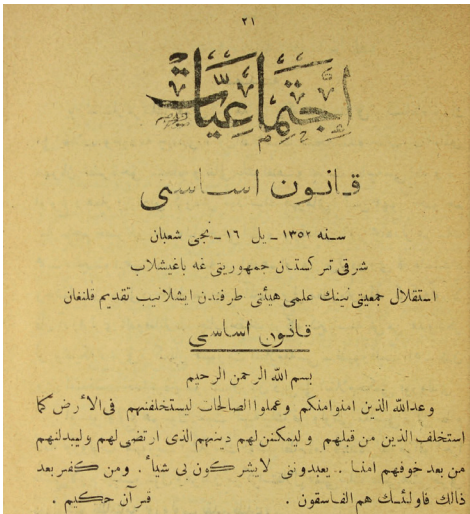 ٢١
اجتماعيات
قانون اساسى
سنه ١٣٥٢ ـ يل ١٦ ـ نجى شعبان
شرقى تركستان جمهوريتى غه باغيشلاب
استقلال جمعيتى نينك علمى هيئتى طرفندن ايشلانيب تقديم قلنغان
قانون اساسى
بسم الله الرحمن الرحيم
وعدالله الذين امنوامنكم وعملوا الصالحات ليستخلفنهم فى الأرض كما
استخلف الذين من قبلهم وليمكنن لهم دينهم الذى ارتضى لهم وليبدلنهم
من بعد خوفهم امنا .. يعبدوننى لايشركون بى شيأ . ومن كفر بعد
ذالك فاولئك هم الفاسقون . قرآن حكيم .